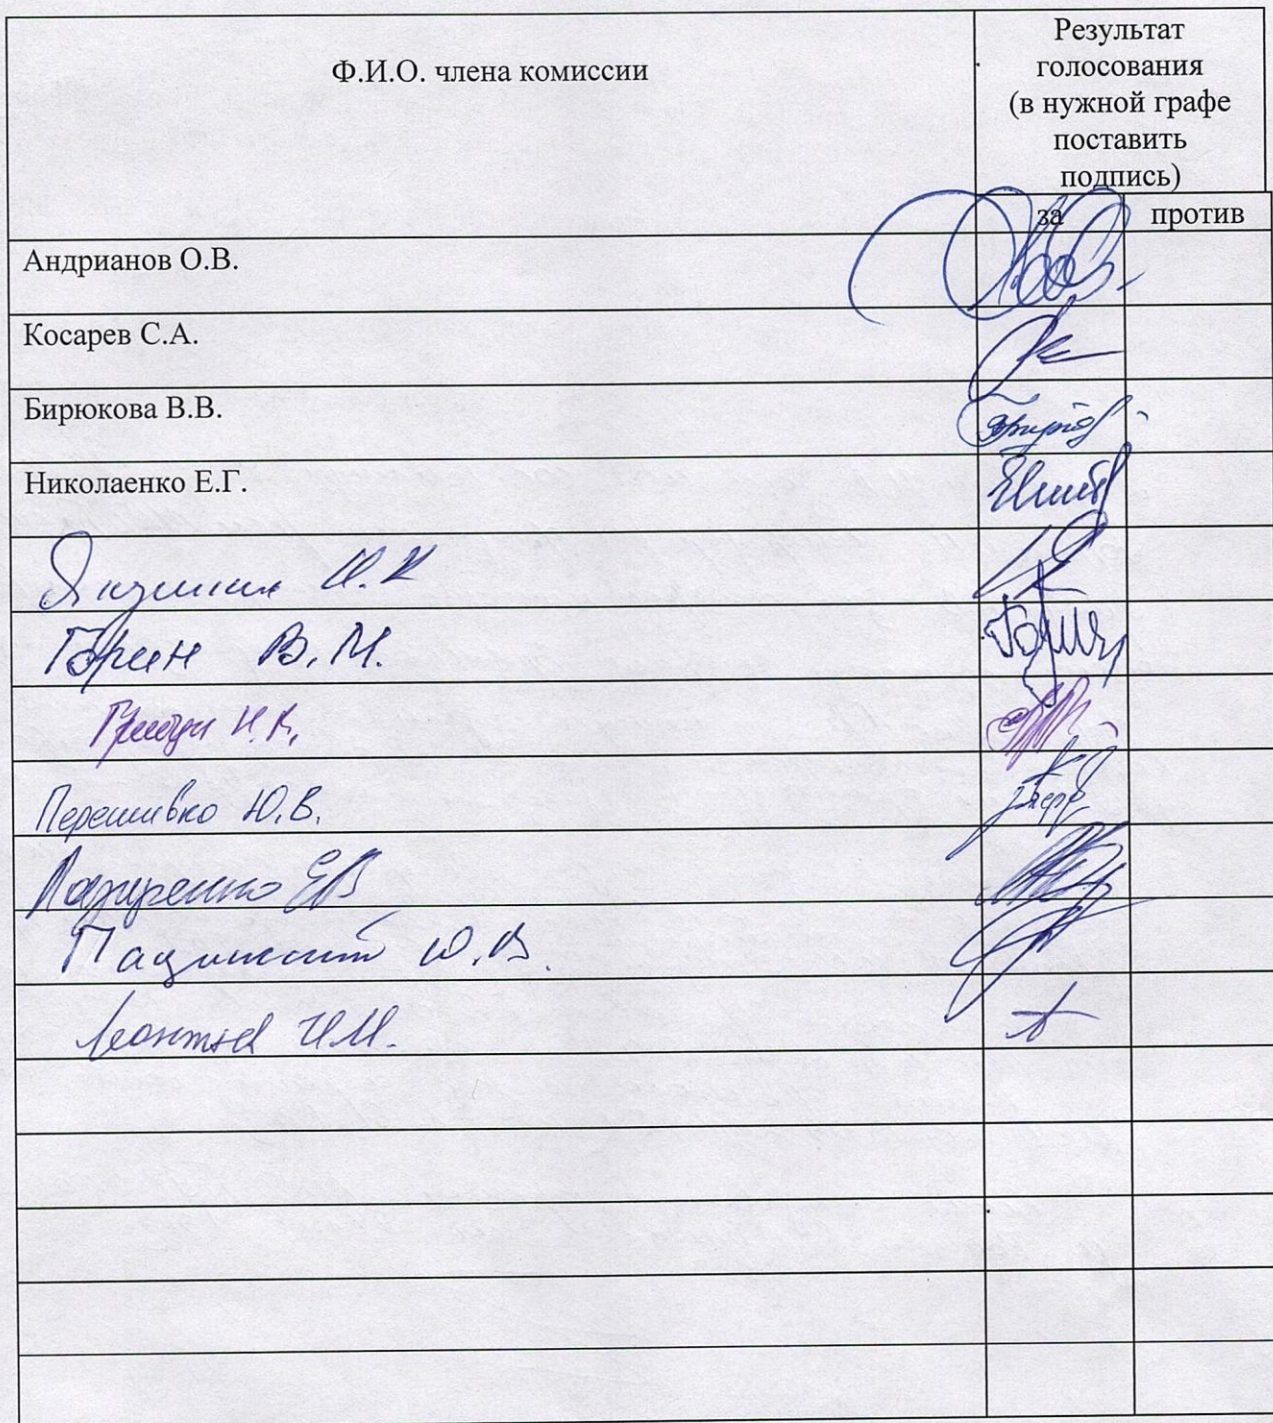 Ф.И.О. члена комиссии
Результат
голосования
(в нужной графе
поставить
подпись)
за
против
Андрианов О.В.
Косарев С.А.
Бирюкова В.В.
Николаенко Е.Г.
Якушкин И.К
Горин В.М.
Н.К.
Перешивко Ю.В.
Лазаренко ЕВ
Ю.В.
И.М.